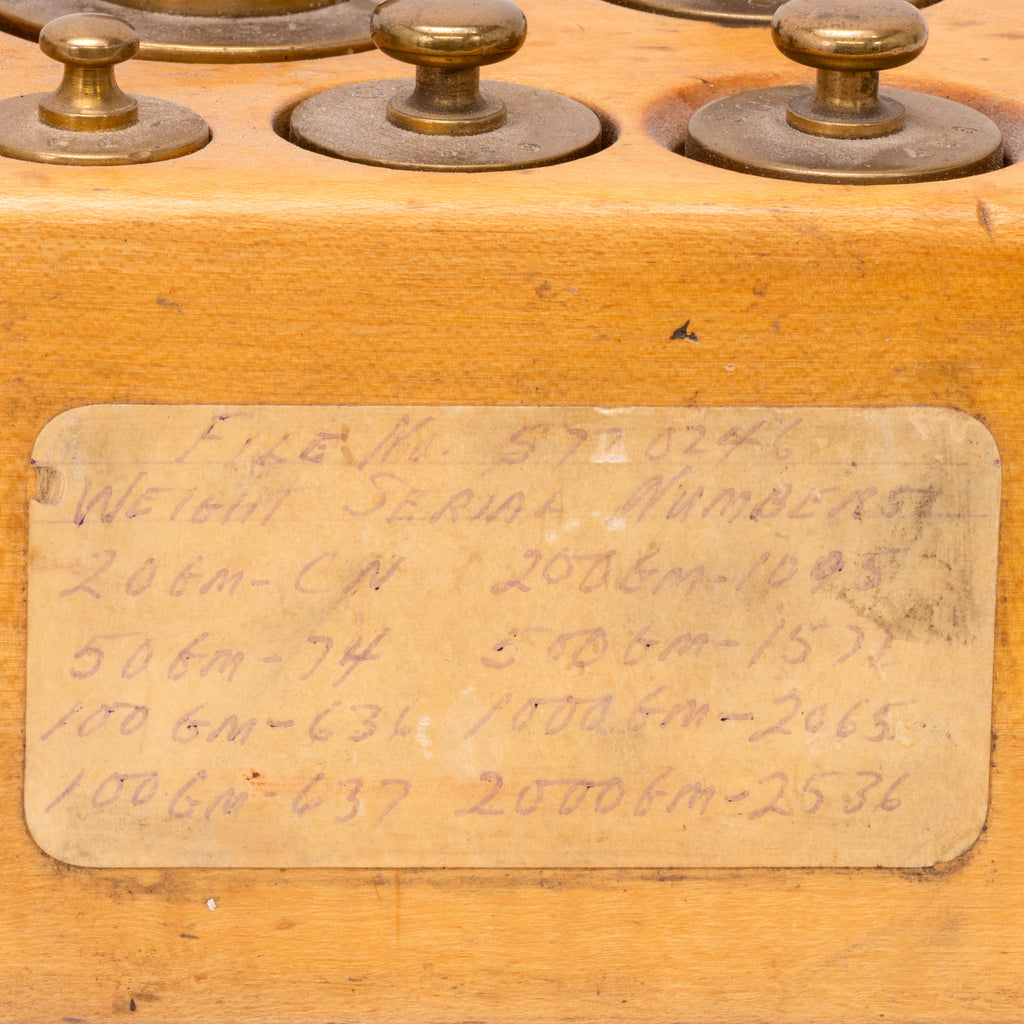 FILE No. 5720246
WEIGHT SERIAL NUMBERS
20 Gm - CN 200 Gm - 1095
50 Gm - 74 500 Gm - 1572
100 Gm - 636 1000 Gm - 2065
100 Gm - 637 2000 Gm - 2536